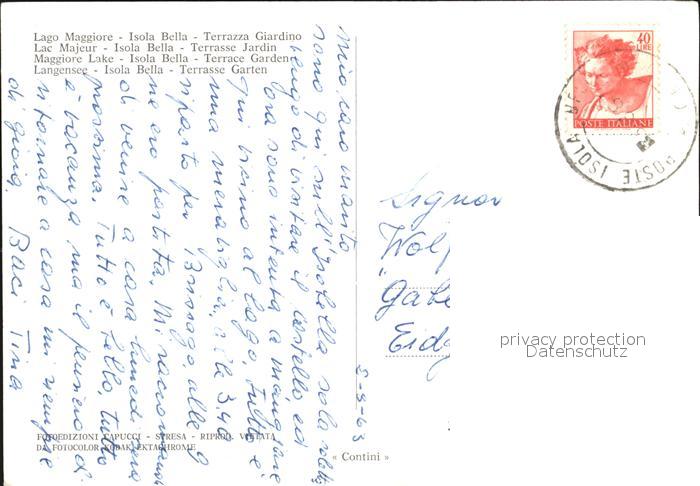 Lago Maggiore - Isola Bella - Terrazza Giardino
Lac Majeur - Isola Bella - Terrasse Jardin
Maggiore Lake - Isola Bella - Terrace Garden
Langensee - Isola Bella - Terrasse Garten
Mio caro marito
sono qui sull'Isolella sola
vengo di visitare il castello, ed
ora sono intenta a mangiare
qui vicino al lago, tutto è
una meraviglia, alle 3.40
riparto per Brissago, alle 9
ne ero partita. Mi
di venire a casa lunedì
prossima. Tutto è bello, tutto
è vacanza, ma il pensiero di
ritornare a casa mi riempie
di gioia. Baci Tina
5-9-63
Signor
Wolf
Gabe
Eidg
40
LIRE
POSTE ITALIANE
POSTE ISOLA
privacy protection
Datenschutz
FOTOEDIZIONI CAPUCCI - STRESA - RIPROD. VIETATA
DA FOTOCOLOR KODAK EKTACHROME
« Contini »